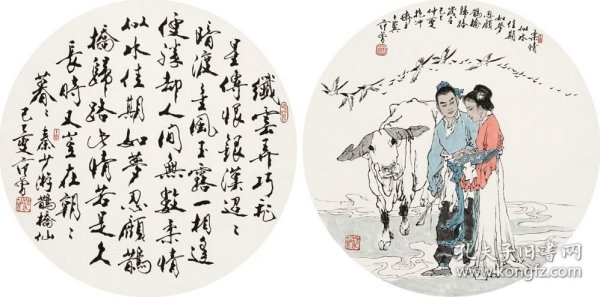 纖雲弄巧飛
星傳恨銀漢迢〻
暗渡金風玉露一相逢
便勝却人间無数柔情
似水佳期如夢忍顧鵲
橋歸路此情若是久
長時又豈在朝〻
暮〻秦少游鵲橋仙
己巳夏范曾
柔情
似水
佳期
如夢
忍顧
鵲橋
歸路
己巳
仲夏
抱冲
十翼
范曾
孔夫子旧书网
www.kongfz.com